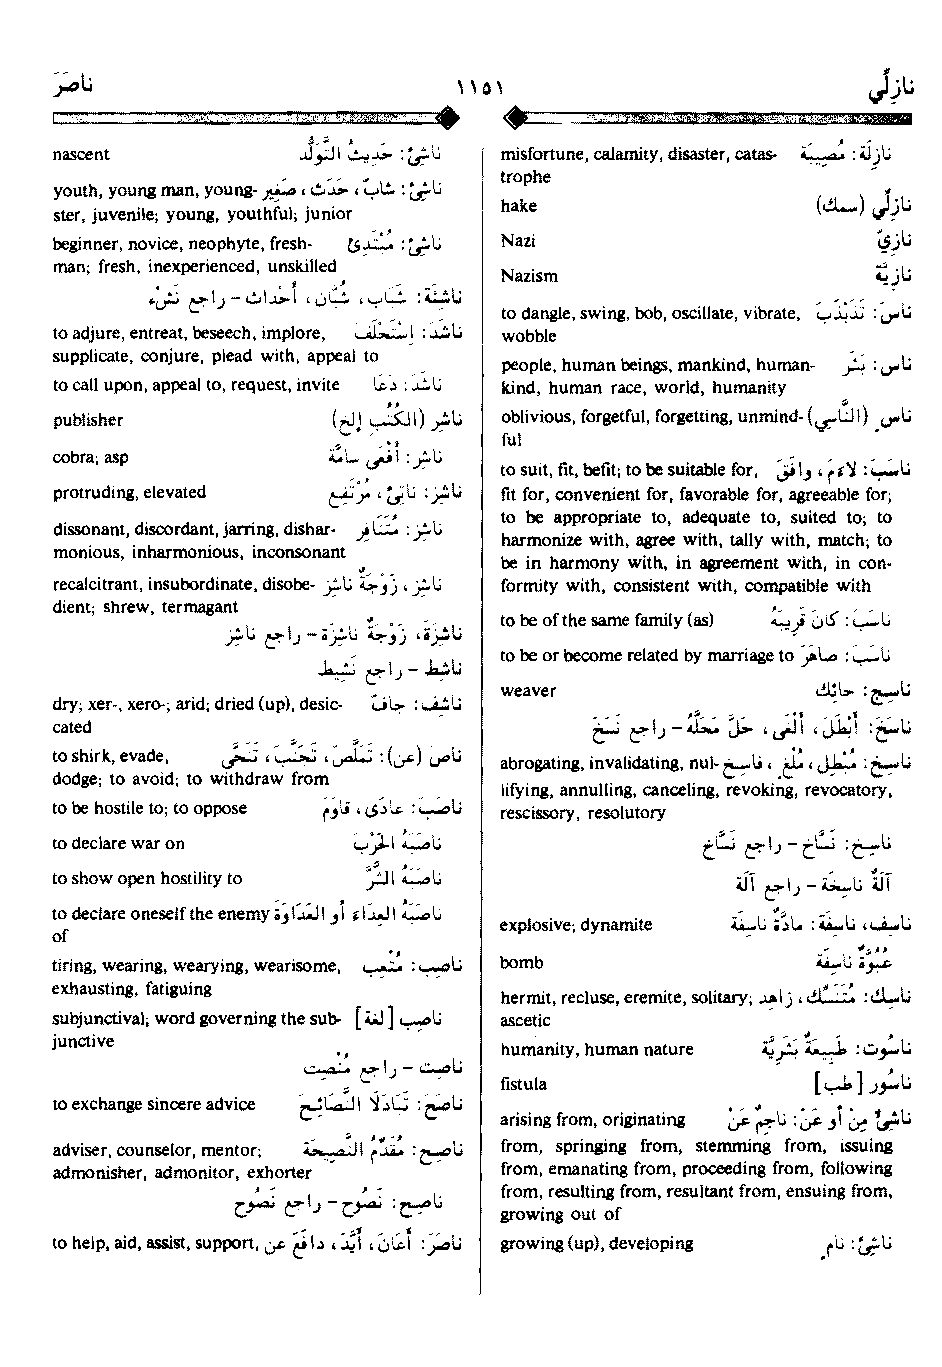 نازِلِّي ١١٥١ ناصَرَ
نازِلَة: مُصِيبَة misfortune, calamity, disaster, catas-
trophe
نازِلِّي (سمك) hake
نازِيّ Nazi
نازِيَّة Nazism
ناسَ: تَذَبْذَبَ to dangle, swing, bob, oscillate, vibrate,
wobble
ناس: بَشَر people, human beings, mankind, human-
kind, human race, world, humanity
ناسٍ (النَّاسِي) oblivious, forgetful, forgetting, unmind-
ful
ناسَبَ: لاءَمَ، وافَقَ to suit, fit, befit; to be suitable for,
fit for, convenient for, favorable for, agreeable for;
to be appropriate to, adequate to, suited to; to
harmonize with, agree with, tally with, match; to
be in harmony with, in agreement with, in con-
formity with, consistent with, compatible with
ناسَبَ: كانَ قَرِيبَهُ to be of the same family (as)
ناسَبَ: صاهَرَ to be or become related by marriage to
ناسِج: حائِك weaver
ناسَخَ: أَبْطَلَ، أَلْغَى، حَلَّ مَحَلَّهُ - راجع نَسَخَ
ناسِخ: مُبْطِل، مُلْغٍ، فاسِخ abrogating, invalidating, nul-
lifying, annulling, canceling, revoking, revocatory,
rescissory, resolutory
ناسِخ: نَسَّاخ - راجع نَسَّاخ
آلَةٌ ناسِخَة - راجع آلَة
ناسِف، ناسِفَة: مادَّةٌ ناسِفَة explosive; dynamite
عُبُوَّةٌ ناسِفَة bomb
ناسِك: مُتَنَسِّك، زاهِد hermit, recluse, eremite, solitary;
ascetic
ناسُوت: طَبِيعَةٌ بَشَرِيَّة humanity, human nature
ناسُور [طب] fistula
ناشِئٌ مِنْ أو عَنْ: ناجِمٌ عَنْ arising from, originating
from, springing from, stemming from, issuing
from, emanating from, proceeding from, following
from, resulting from, resultant from, ensuing from,
growing out of
ناشِئ: نامٍ growing (up), developing
ناشِئ: حَدِيثُ التَّوَلُّد nascent
ناشِئ: شابّ، حَدَث، صَغِير youth, young man, young-
ster, juvenile; young, youthful; junior
ناشِئ: مُبْتَدِئ beginner, novice, neophyte, fresh-
man; fresh, inexperienced, unskilled
ناشِئَة: شَبَاب، شُبَّان، أَحْداث - راجع نَشْء
ناشَدَ: اِسْتَحْلَفَ to adjure, entreat, beseech, implore,
supplicate, conjure, plead with, appeal to
ناشَدَ: دَعَا to call upon, appeal to, request, invite
ناشِر (الكُتُبِ إلخ) publisher
ناشِر: أَفْعَى سامَّة cobra; asp
ناشِز: ناتِئ، مُرْتَفِع protruding, elevated
ناشِز: مُتَنَافِر dissonant, discordant, jarring, dishar-
monious, inharmonious, inconsonant
ناشِز، زَوْجَةٌ ناشِز recalcitrant, insubordinate, disobe-
dient; shrew, termagant
ناشِزَة، زَوْجَةٌ ناشِزَة - راجع ناشِز
ناشِط - راجع نَشِيط
ناشِف: جافّ dry; xer-, xero-; arid; dried (up), desic-
cated
ناصَ (عن): تَمَلَّصَ، تَجَنَّبَ، تَنَحَّى to shirk, evade,
dodge; to avoid; to withdraw from
ناصَبَ: عادَى، قاوَمَ to be hostile to; to oppose
ناصَبَهُ الحَرْبَ to declare war on
ناصَبَهُ الشَّرَّ to show open hostility to
ناصَبَهُ العِدَاءَ أو العَدَاوَةَ to declare oneself the enemy
of
ناصِب: مُتْعِب tiring, wearing, wearying, wearisome,
exhausting, fatiguing
ناصِب [لغة] subjunctival; word governing the sub-
junctive
ناصِت - راجع مُنْصِت
ناصَحَ: تَبَادَلَا النَّصائِحَ to exchange sincere advice
ناصِح: مُقَدِّمُ النَّصِيحَة adviser, counselor, mentor;
admonisher, admonitor, exhorter
ناصِح: نَصُوح - راجع نَصُوح
ناصَرَ: أَعَانَ، أَيَّدَ، دافَعَ عن to help, aid, assist, support,